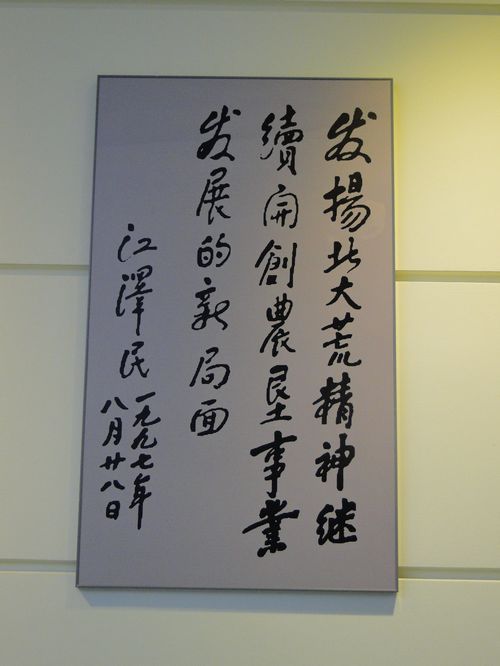 发揚北大荒精神継
續開創農垦事業
发展的新局面
江澤民
一九九七年
八月廿八日